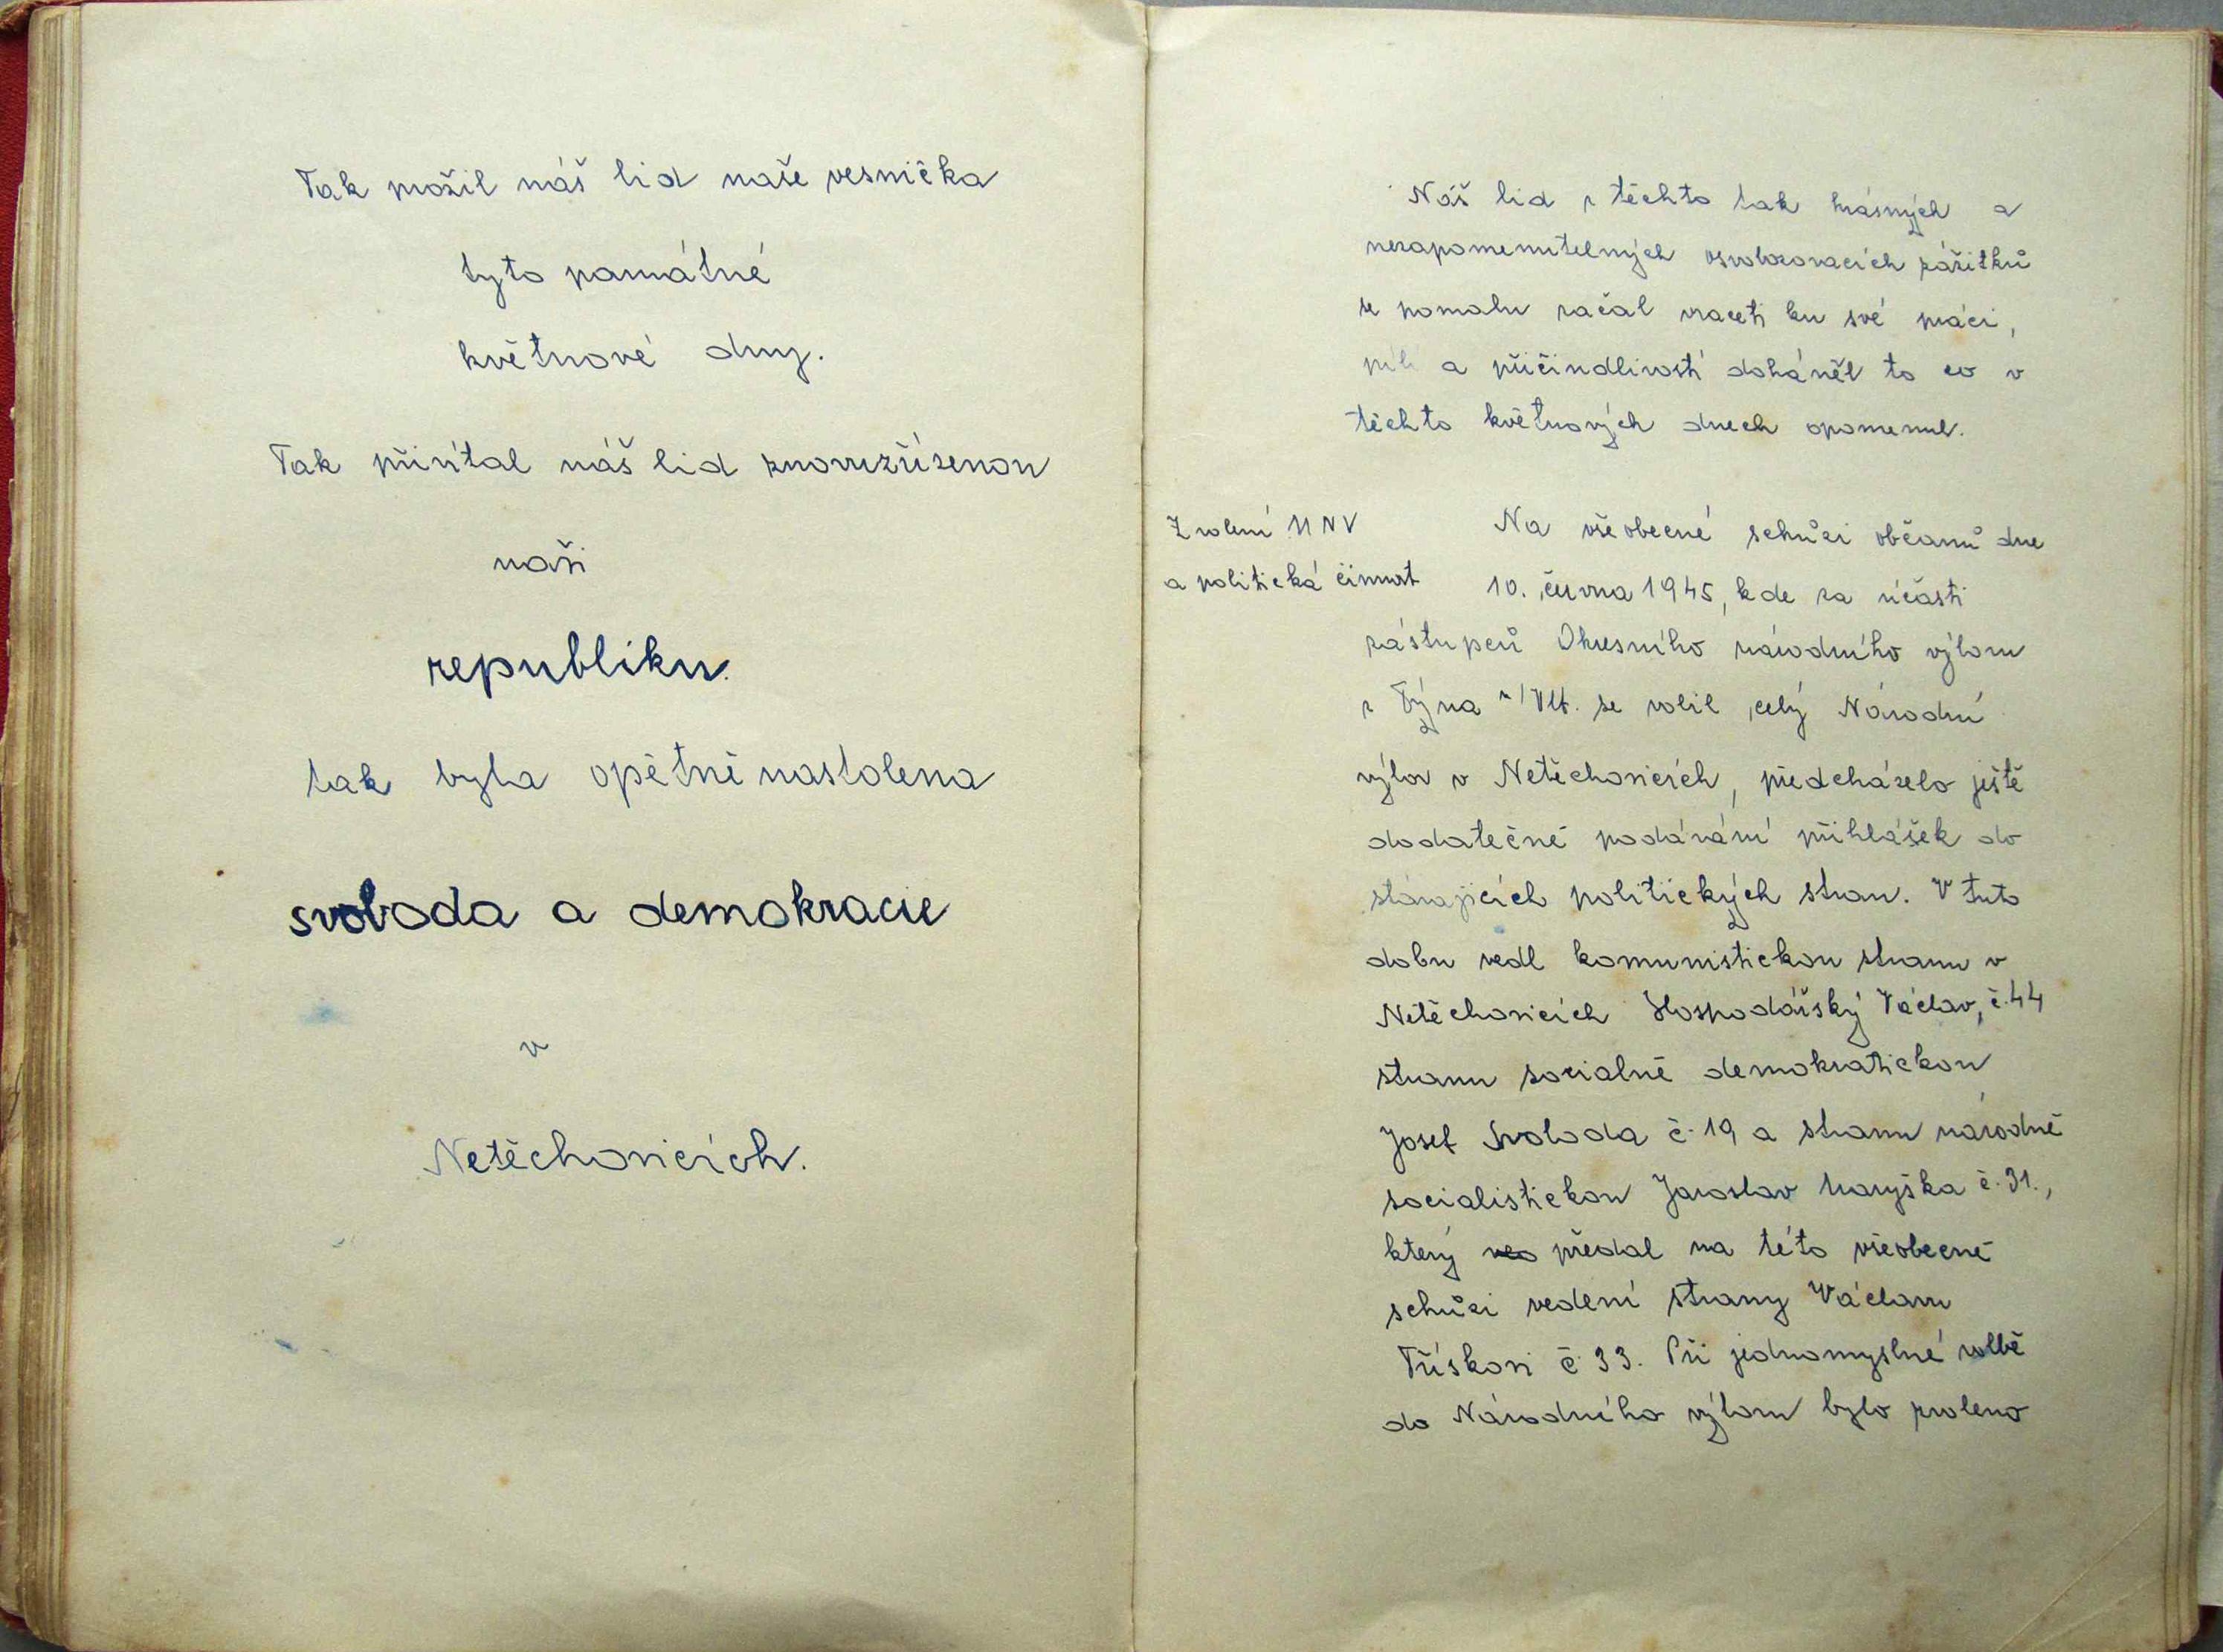 Tak prožil náš lid naše vesnička
tyto památné
květnové dny.
Tak přivítal náš lid znovuzřízenou
naši
republiku.
tak byla opětně nastolena
svoboda a demokracie
v
Netěchovicích.
Náš lid z těchto tak krásných a
nezapomenutelných osvobozovacích zážitků
se pomalu začal vraceti ku své práci,
pílí a přičindlivostí doháněl to co v
těchto květnových dnech opomenul.
Zvolení MNV
a politická činnost
Na všeobecné schůzi občanů dne
10. června 1945, kde za účasti
zástupců Okresního národního výboru
z Týna n/Vlt. se volil celý Národní
výbor v Netěchovicích, předcházelo ještě
dodatečné podávání přihlášek do
stávajících politických stran. V tuto
dobu vedl komunistickou stranu v
Netěchovicích Hospodářský Václav, č. 44
stranu socialně demokratickou
Josef Svoboda č. 19 a stranu národně
socialistickou Jaroslav Maryška č. 31.,
který předal na této všeobecné
schůzi vedení strany Václavu
Třískovi č. 33. Při jednomyslné volbě
do Národního výboru bylo zvoleno